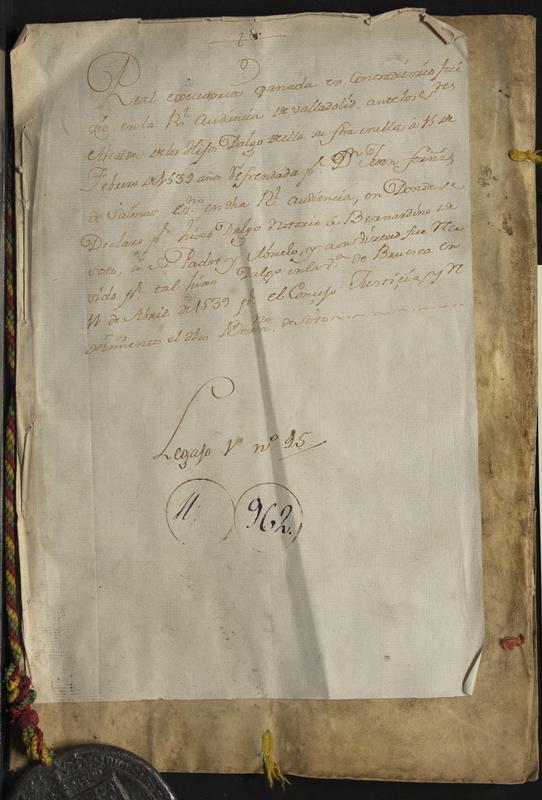 Real executoria ganada en contradictorio jui
zio en la Rl. Audiencia de valladolid ante los
Alcaldes de los Hijos Dalgo de ella su fha en ella á 15 de
Febrero de 1539 años refrendada pr. Dn. Juan
de Salinas en dha Rl. Audiencia, en Donde se
Declaro pr. hijo Dalgo Notorio á Bernardino de
soto, á su Padre y Abuelo, y a su
vido pr. tal hijo Dalgo en la va. de Brivesca en
11 de Abril de 1539 pr. el Concejo Justicia, y
el dho de Soto
Legajo 1º nº 95
11. 962.